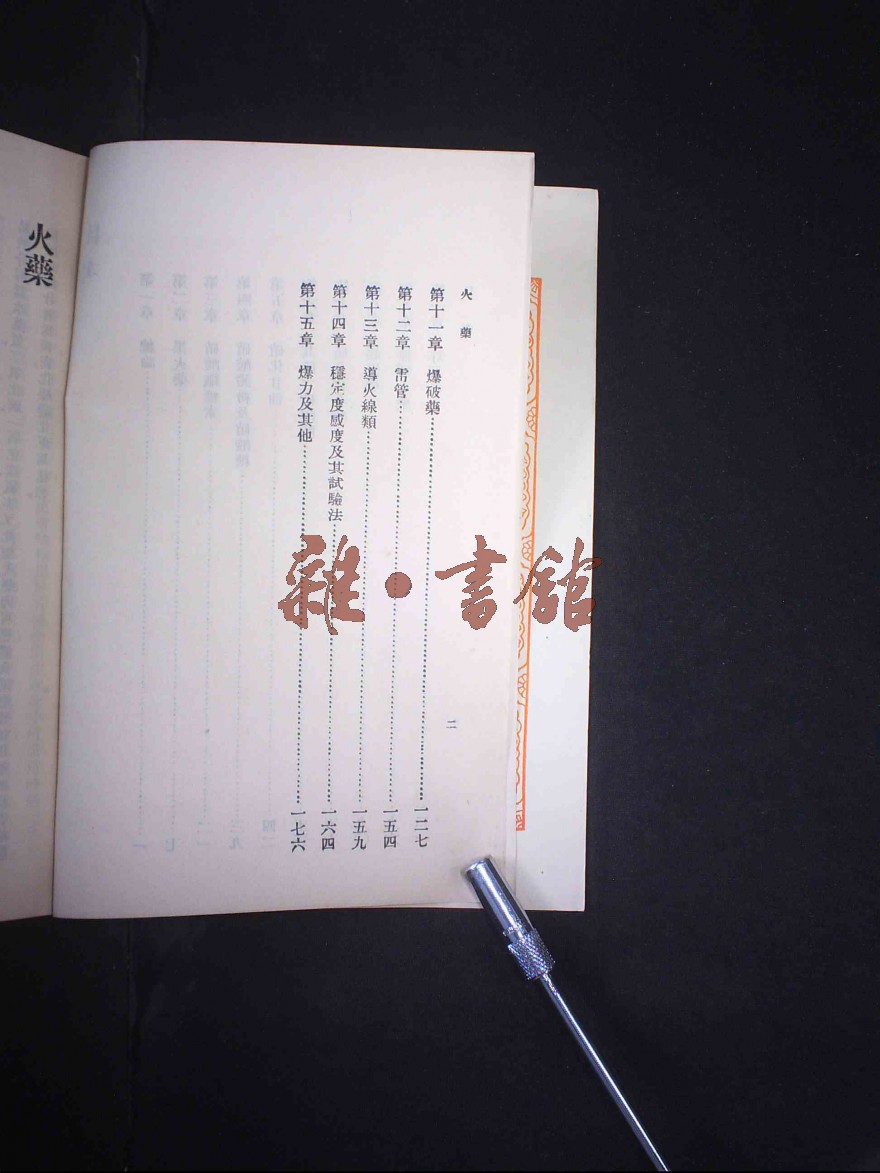 火藥
第十一章　爆破藥……一二七
第十二章　雷管……一五四
第十三章　導火線類……一五九
第十四章　穩定度感度及其試驗法……一六四
第十五章　爆力及其他……一七六
二
火藥
雜·書館